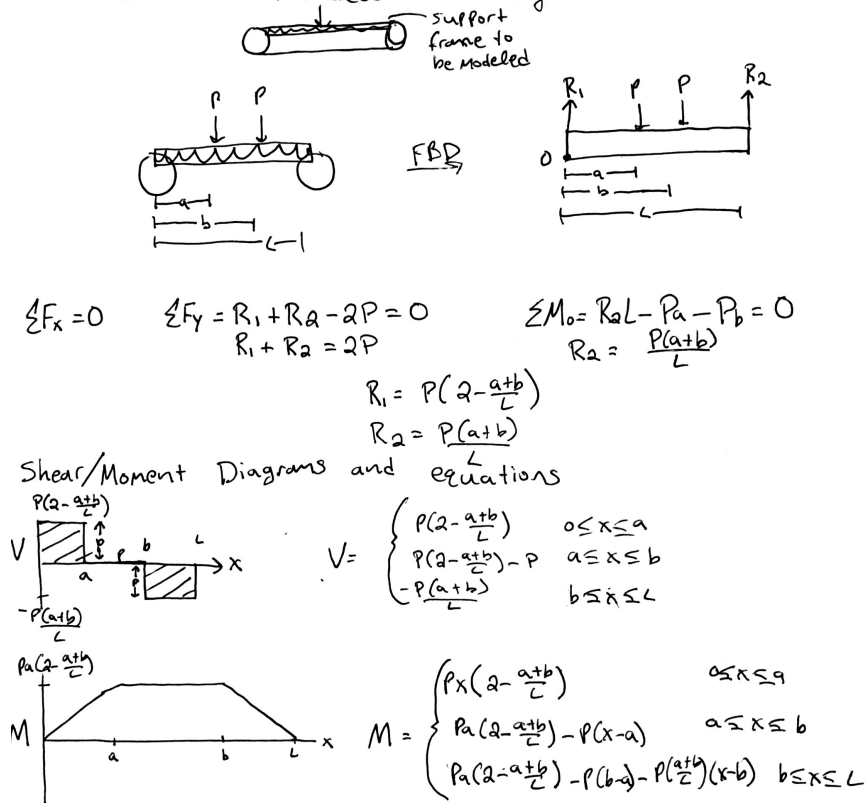 support
frame to
be modeled
P P
R₁ P P R2
FBD
O
a
b
L
a
b
L
ΣFx = 0 ΣFy = R₁ + R2 - 2P = 0 ΣMo = R2L - Pa - Pb = 0
R₁ + R2 = 2P R2 = P(a+b)/L
R₁ = P(2 - a+b/L)
R2 = P(a+b)/L
Shear/Moment Diagrams and equations
P(2 - a+b/L)
V P P b L x
a P
-P(a+b)/L
V = { P(2 - a+b/L) 0≤x≤a
P(2 - a+b/L) - P a≤x≤b
-P(a+b)/L b≤x≤L
Pa(2 - a+b/L)
M a b L x
M = { Px(2 - a+b/L) 0≤x≤a
Pa(2 - a+b/L) - P(x-a) a≤x≤b
Pa(2 - a+b/L) - P(b-a) - P(a+b/L)(x-b) b≤x≤L